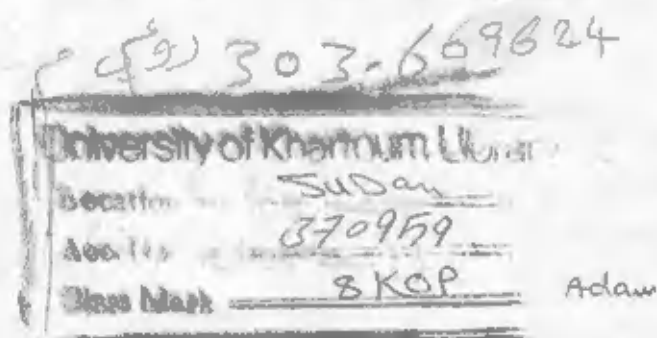 303.669624
University of Khartoum Library
Location Sudan
370959
Class Mark 8KOP Adam